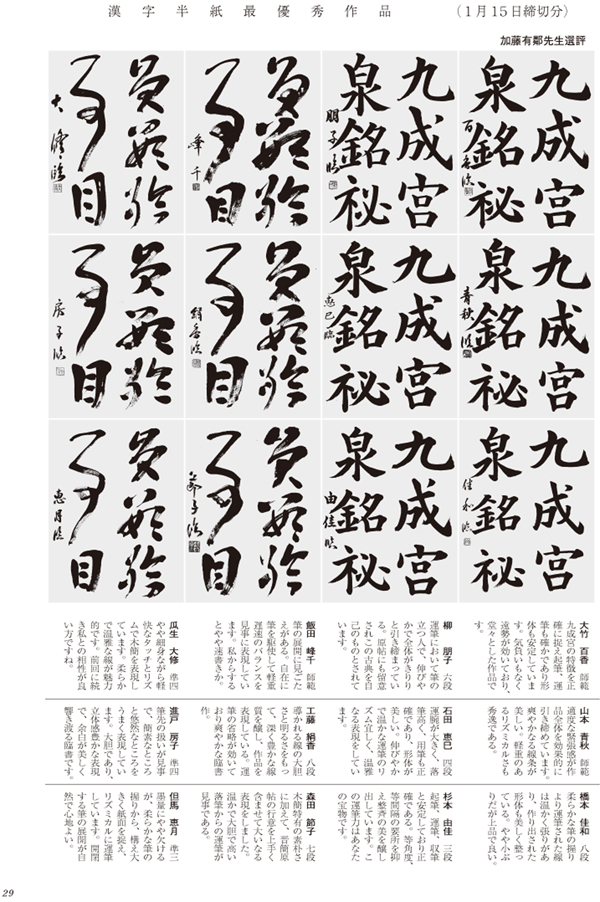 漢字半紙最優秀作品
（1月15日締切分）
加藤有鄰先生選評
九成宮
泉銘祕
百香臨
九成宮
泉銘祕
朋子臨
峰千
大修臨
九成宮
泉銘祕
青秋臨
九成宮
泉銘祕
恵巳臨
絹香臨
房子臨
九成宮
泉銘祕
佳和臨
九成宮
泉銘祕
由佳臨
節子臨
恵月臨
大竹 百香 師範
九成宮の特徴を正
確に捉え起筆、運
筆も確かであり形
体も安定していま
す。気負いもなく
遠勢が効いており、
堂々とした作品で
す。
柳 朋子 六段
運筆において筆の
立つ人で、伸びや
かで全体がきりり
と引き締まってい
る。原帖にも留意
されこの古典を自
己のものとされて
います。
飯田 峰千 師範
筆の展開に見ごた
えがある。自在に
筆を駆使して軽重
遅速のバランスを
見事に表現してい
ます。私からする
とやや速書きか。
瓜生 大修 準四
やや細身ながら軽
快なタッチとリズ
ムで木簡を表現し
ています。柔らか
で温雅な線が魅力
的です。前回に続
き私との相性が良
い方ですね。
山本 青秋 師範
適度な緊張感が作
品全体を効果的に
引き締めています。
爽やかなる線条が
美しい。軽重のあ
るリズミカルさも
秀逸である。
石田 恵巳 四段
運腕が大きく、落
筆高く、用筆も正
確であり、形体が
美しい。伸びやか
で温かな運筆のリ
ズム宜しく、温雅
なる表現をしてい
ます。
工藤 絹香 八段
導かれる線の大胆
さと明るさをもっ
て、深く豊かな線
質を醸し、作品を
表現している。運
筆の省略が効いて
おり爽やかな臨書
作。
進戸 房子 準四
筆先の扱いが見事
で、簡素なところ
と悠然なところを
うまく表現してい
ます。大胆であり、
立体感豊かな表現
で、余白が美しく
響き渡る臨書です。
橋本 佳和 八段
柔らかな筆の握り
より運筆された線
は温かく張りがあ
り、作り出された
形体も美しく整っ
ている。やや小ぶ
りだが上品で良い。
杉本 由佳 三段
起筆、運筆、収筆
と安定しており正
確である。等角度、
等間隔の要所を抑
え整斉の美を醸し
出しています。こ
の運筆力はあなた
の宝物です。
森田 節子 七段
木簡特有の素朴さ
に加えて、晋簡原
帖の行意を上手く
含ませて大いなる
表現をしました。
温かで大胆で高い
落筆からの運筆が
見事である。
但馬 恵月 準三
墨量にやや欠ける
が、柔らかな筆の
握りから、構え大
きく紙面を捉え、
リズミカルに運筆
しています。開閉
する筆の展開が自
然で心地よい。
29